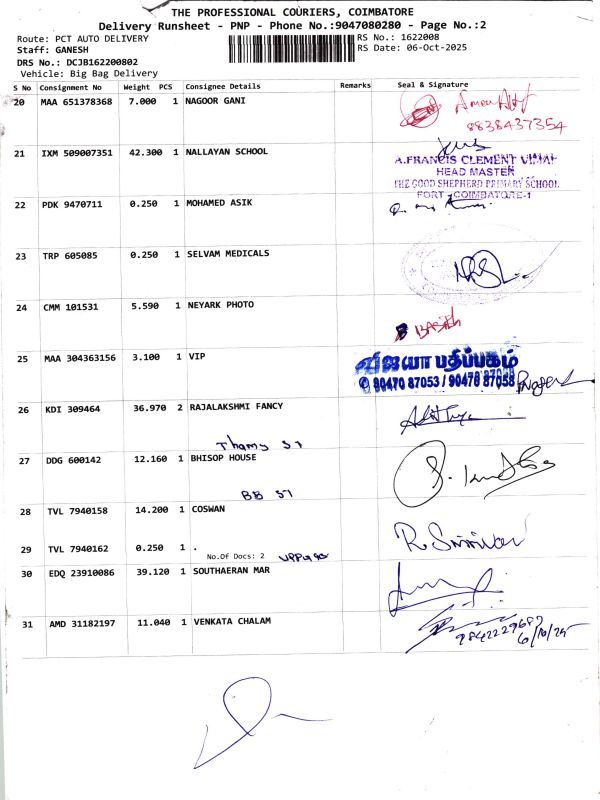 THE PROFESSIONAL COURIERS, COIMBATORE
Delivery Runsheet - PNP - Phone No.:9047080280 - Page No.:2
Route: PCT AUTO DELIVERY
RS No.: 1622008
Staff: GANESH
RS Date: 06-Oct-2025
DRS No.: DCJB162200802
Vehicle: Big Bag Delivery
S No Consignment No Weight PCS Consignee Details Remarks Seal & Signature
20 MAA 651378368 7.000 1 NAGOOR GANI
8838437354
21 IXM 509007351 42.300 1 NALLAYAN SCHOOL
A.FRANCIS CLEMENT VIMAL
HEAD MASTER
THE GOOD SHEPHERD PRIMARY SCHOOL
FORT, COIMBATORE-1
22 PDK 9470711 0.250 1 MOHAMED ASIK
23 TRP 605085 0.250 1 SELVAM MEDICALS
24 CMM 101531 5.590 1 NEYARK PHOTO
BASITH
25 MAA 304363156 3.100 1 VIP
விஜயா பதிப்பகம்
90470 87053 / 90470 87058
26 KDI 309464 36.970 2 RAJALAKSHMI FANCY
Thamy ST
27 DDG 600142 12.160 1 BHISOP HOUSE
BB ST
28 TVL 7940158 14.200 1 COSWAN
R. Srinivan
29 TVL 7940162 0.250 1 .
No.Of Docs: 2
30 EDQ 23910086 39.120 1 SOUTHAERAN MAR
31 AMD 31182197 11.040 1 VENKATA CHALAM
9842229687
6/10/25